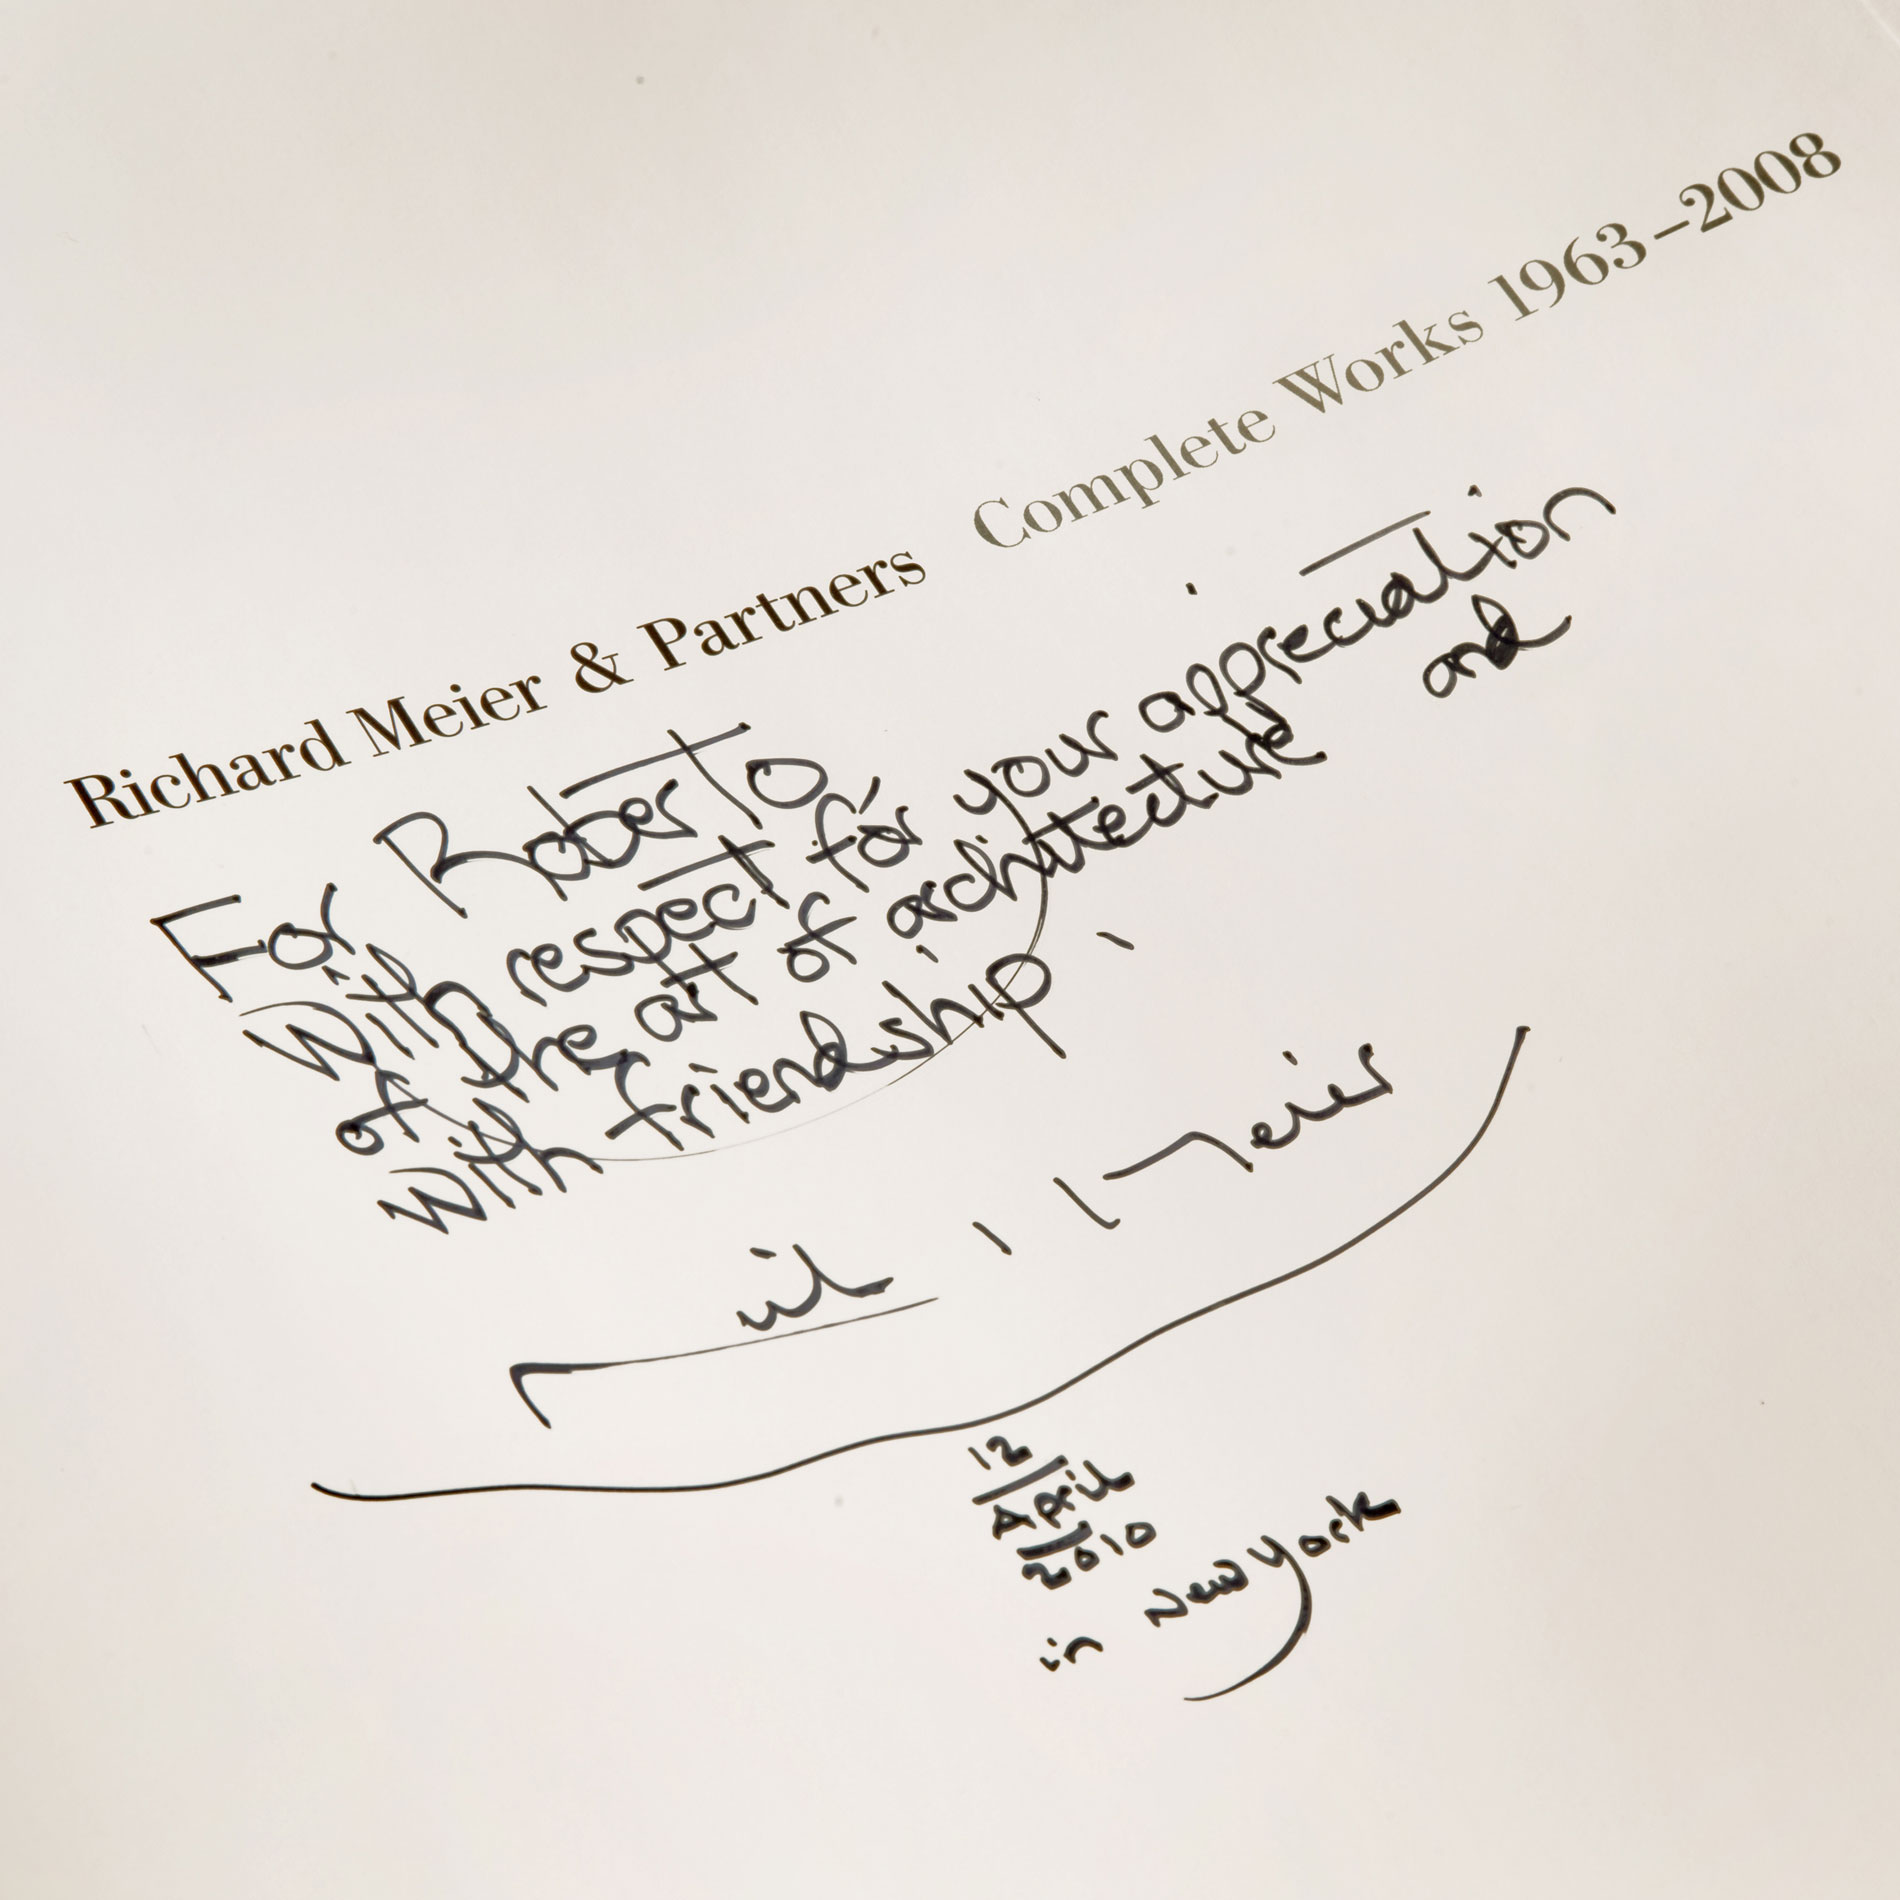 Richard Meier & Partners Complete Works 1963–2008
For Roberto
With respect for your appreciation
of the art of architecture and
with friendship
Meier
12
April
2010
in New York